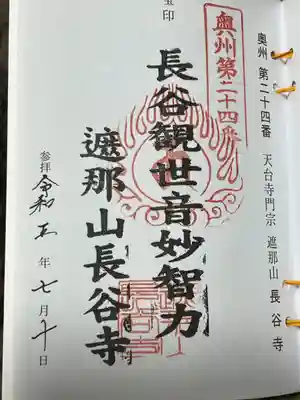 奥州 第二十四番 天台寺門宗 遮那山 長谷寺
奥州第二十四番
長谷観世音妙智力
遮那山長谷寺
宝印
参拝 令和五年七月十日